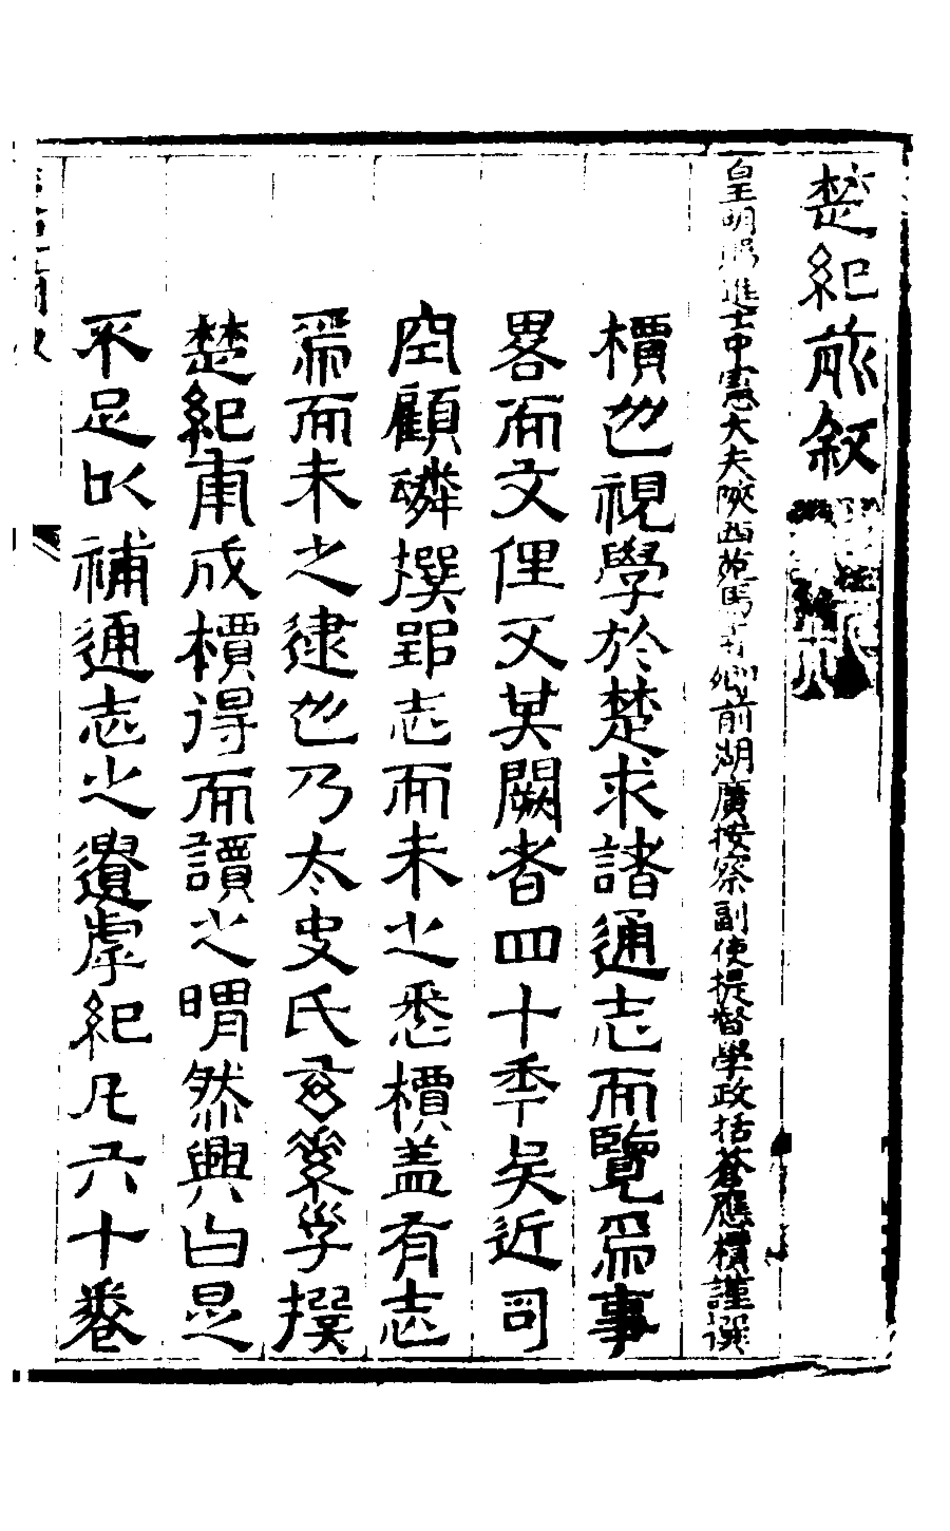 楚紀前敘
皇明賜進士中憲大夫陝西苑馬寺卿前湖廣按察副使提督學政括蒼應檟謹譔
檟也視學於楚求諸通志而覽焉事
畧而文俚又其闕者四十年矣近司
空顧璘撰郢志而未之悉檟盖有志
焉而未之逮也乃太史氏玄素學撰
楚紀甫成檟得而讀之喟然興曰是
不足以補通志之遺虖紀凡六十卷